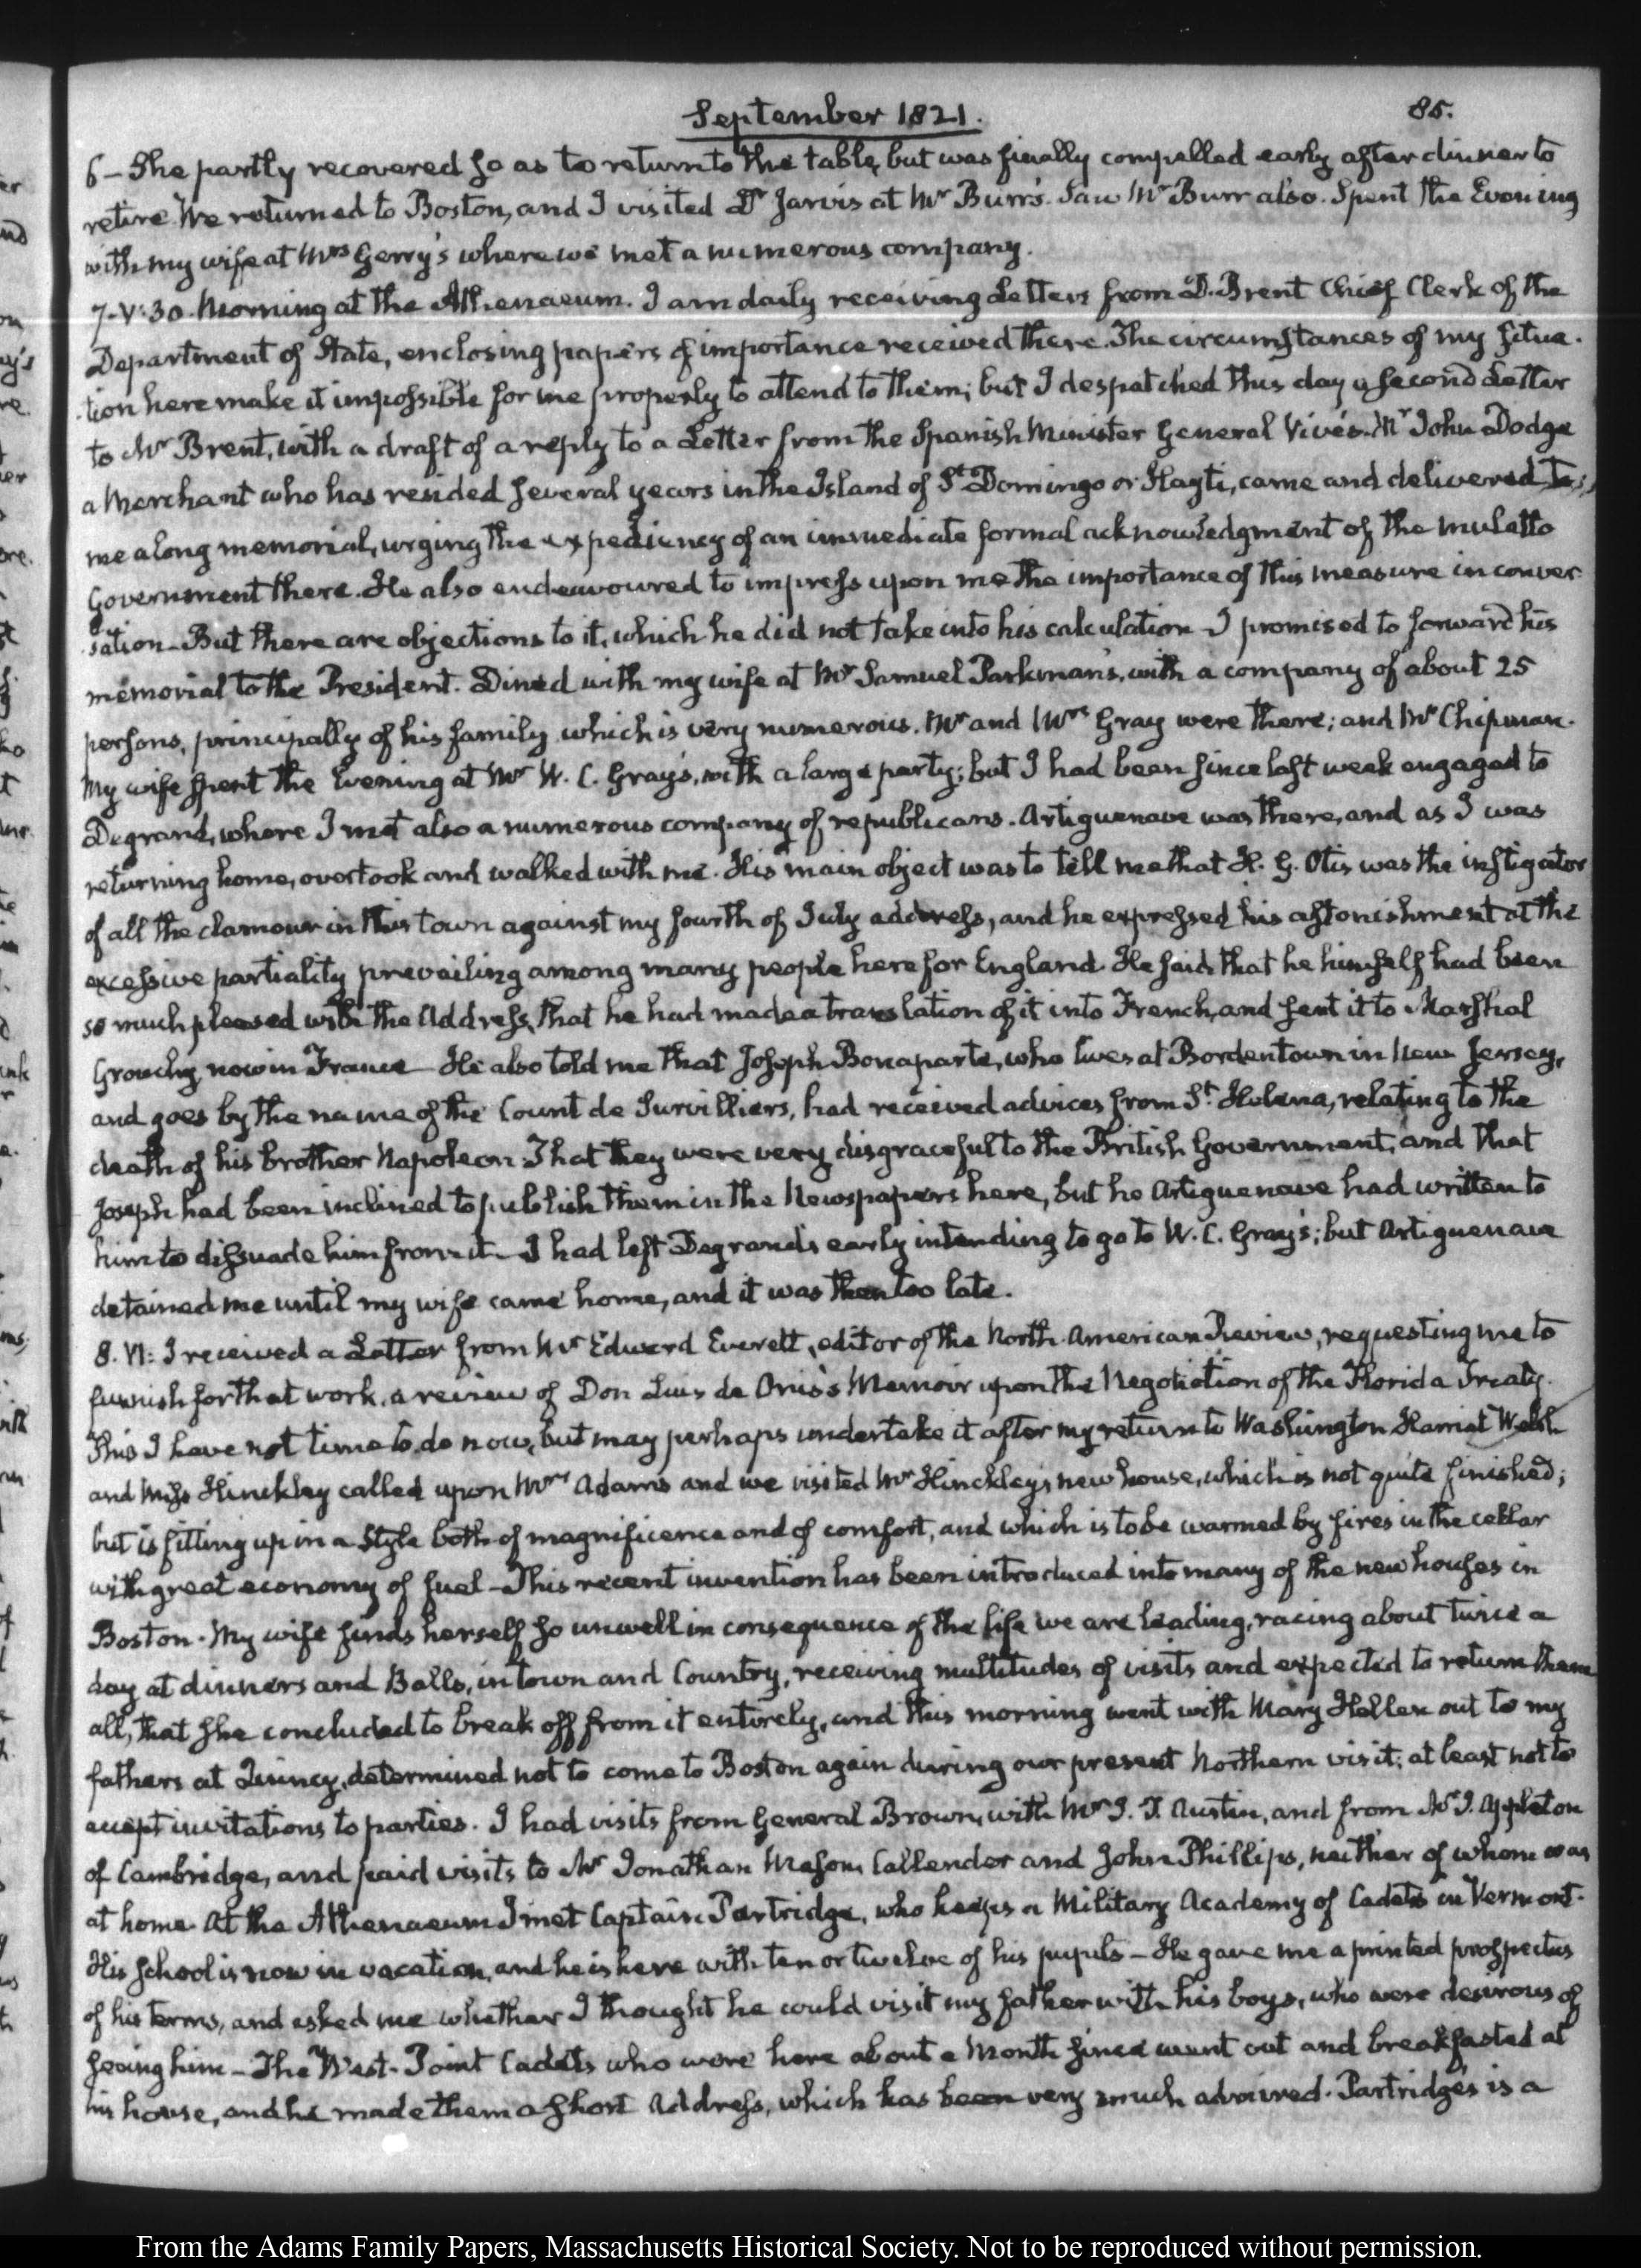 September 1821.
85.
6 – She partly recovered so as to return to the table, but was finally compelled early after dinner to
retire. We returned to Boston, and I visited Dr Jarvis at Mr Burr's. Saw Mr Burr also. Spent the Evening
with my wife at Mrs Gerry's where we met a numerous company.
7. V:30. Morning at the Athenaeum. I am daily receiving Letters from D. Brent Chief Clerk of the
Department of State, enclosing papers of importance received there. The circumstances of my situa-
tion here make it impossible for me properly to attend to them; but I despatched this day a second Letter
to Mr Brent, with a draft of a reply to a Letter from the Spanish Minister General Vivés. Mr John Dodge
a Merchant who has resided several years in the Island of St Domingo or Hayti, came and delivered to
me a long memorial, urging the expediency of an immediate formal acknowledgment of the mulatto
Government there. He also endeavoured to impress upon me the importance of this measure in conver-
sation – But there are objections to it, which he did not take into his calculation – I promised to forward his
memorial to the President. Dined with my wife at Mr Samuel Parkman's, with a company of about 25
persons, principally of his family which is very numerous. Mr and Mrs Gray were there; and Mr Chipman.
My wife spent the Evening at Mr W. C. Gray's, with a large party; but I had been since last week engaged to
Degrand, where I met also a numerous company of republicans. Artiguenave was there, and as I was
returning home, overtook and walked with me. His main object was to tell me that H. G. Otis was the instigator
of all the clamour in this town against my fourth of July address, and he expressed his astonishment at the
excessive partiality prevailing among many people here for England. He said that he himself had been
so much pleased with the Address, that he had made a translation of it into French, and sent it to Marshal
Grouchy now in France – He also told me that Joseph Bonaparte, who lives at Bordentown in New Jersey,
and goes by the name of the Count de Survilliers, had received advices from St. Helena, relating to the
death of his brother Napoleon. That they were very disgraceful to the British Government, and that
Joseph had been inclined to publish them in the Newspapers here, but he Artiguenave had written to
him to dissuade him from it – I had left Degrand's early intending to go to W. C. Gray's; but Artiguenave
detained me until my wife came home, and it was then too late.
8. VI: I received a Letter from Mr Edward Everett, editor of the North American Review, requesting me to
furnish for that work, a review of Don Luis de Onis's Memoir upon the Negotiation of the Florida Treaty.
This I have not time to do now, but may perhaps undertake it after my return to Washington. Harriet Welsh
and Miss Hinckley called upon Mrs Adams and we visited Mr Hinckley's new house, which is not quite finished;
but is fitting up in a Style both of magnificence and of comfort, and which is to be warmed by fires in the cellar
with great economy of fuel – This recent invention has been introduced into many of the new houses in
Boston. My wife finds herself so unwell in consequence of the life we are leading, racing about twice a
day at dinners and Balls, in town and Country, receiving multitudes of visits and expected to return them
all, that she concluded to break off from it entirely, and this morning went with Mary Hellen out to my
fathers at Quincy, determined not to come to Boston again during our present Northern visit; at least not to
accept invitations to parties. I had visits from General Brown, with Mr J. T. Austin, and from Mr J. Appleton
of Cambridge, and paid visits to Mr Jonathan Mason, Callender and John Phillips, neither of whom was
at home. At the Athenaeum I met Captain Partridge, who keeps a Military Academy of Cadets in Vermont.
His school is now in vacation, and he is here with ten or twelve of his pupils – He gave me a printed prospectus
of his terms, and asked me whether I thought he could visit my father with his boys, who were desirous of
seeing him – The West-Point Cadets who were here about a Month since went out and breakfasted at
his house, and he made them a short Address, which has been very much admired. Partridge's is a
From the Adams Family Papers, Massachusetts Historical Society. Not to be reproduced without permission.